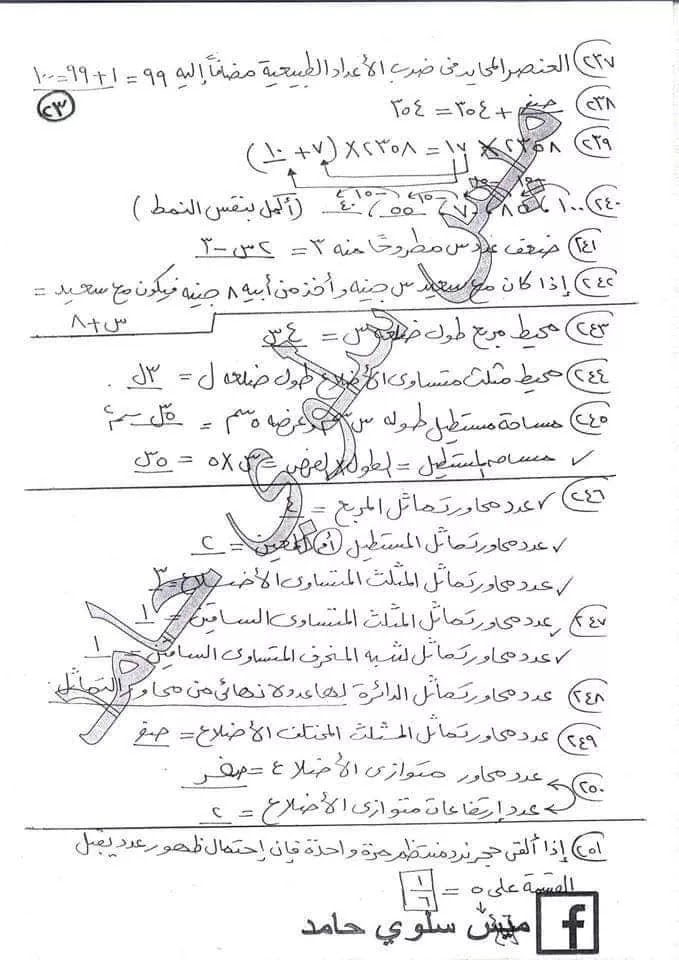 ٢٣٧ العنصر المحايد فى ضرب الأعداد الطبيعية مضافاً إليه ٩٩ = ١ + ٩٩ = ١٠٠
٢٣
٢٣٨ صفر + ٣٥٤ = ٣٥٤
٢٣٩ ٢٣٥٨ × ١٧ = ٢٣٥٨ × (٧ + ١٠)
٢٤٠ ١٠٠، ٨٥، ٧٠، ٥٥، ٤٠ (أكمل بنفس النمط)
٢٤١ ضعف عدد س مطروحًا منه ٣ = ٢س - ٣
٢٤٢ إذا كان مع سعيد س جنيه وأخذ من أبيه ٨ جنيه فيكون مع سعيد =
س + ٨
٢٤٣ محيط مربع طول ضلعه س = ٤س
٢٤٤ محيط مثلث متساوى الأضلاع طول ضلعه ل = ٣ل
٢٤٥ مساحة مستطيل طوله س سم وعرضه ٥ سم = ٥س سم٢
✓ مساحة المستطيل = الطول × العرض = س × ٥ = ٥س
٢٤٦ ✓ عدد محاور تماثل المربع = ٤
✓ عدد محاور تماثل المستطيل أو المعين = ٢
✓ عدد محاور تماثل المثلث المتساوى الأضلاع = ٣
٢٤٧ عدد محاور تماثل المثلث المتساوى الساقين = ١
✓ عدد محاور تماثل لشبه المنحرف المتساوى الساقين = ١
٢٤٨ عدد محاور تماثل الدائرة لها عدد لا نهائى من محاور التماثل
٢٤٩ عدد محاور تماثل المثلث المختلف الأضلاع = صفر
٢٥٠ عدد محاور متوازى الأضلاع = صفر
عدد إرتفاعات متوازى الأضلاع = ٢
٢٥١ إذا ألقى حجر نرد منتظم مرة واحدة فإن إحتمال ظهور عدد يقبل
القسمة على ٥ = ١/٦
ميس سلوي حامد
ميس سلوى حامد